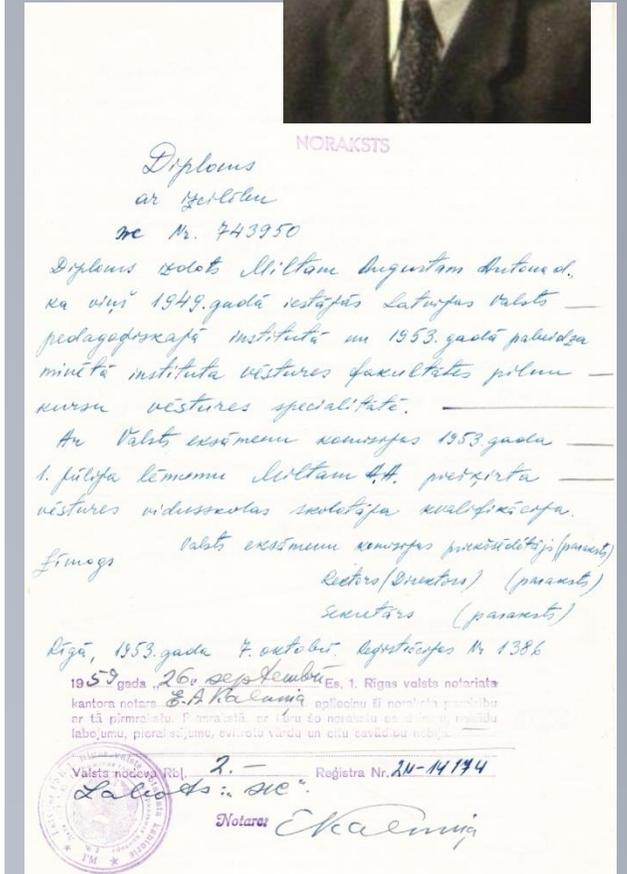 NORAKSTS
Diploms
ar izcilību
Nr. 743950
Diploms izdots Miltam Augustam Antona d.,
ka viņš 1949. gadā iestājās Latvijas Valsts
pedagoģiskajā institūtā un 1953. gadā pabeidza
minētā institūta vēstures fakultātes pilnu
kursu vēstures specialitātē.
Ar Valsts eksāmenu komisijas 1953. gada
1. jūlija lēmumu Miltam A.A. piešķirta
vēstures vidusskolas skolotāja kvalifikācija.
Valsts eksāmenu komisijas priekšsēdētājs (paraksts)
Zīmogs
Rektors (Direktors) (paraksts)
Sekretārs (paraksts)
Rīgā, 1953. gada 7. oktobrī. Reģistrācijas Nr 1386
1959 gada „26„ septembrī Es, 1. Rīgas valsts notariata
kantora notars E.A. Kalniņa apliecinu šī noraksta pareizību
ar tā pirmrakstu. ar kuru šo norakstu
labojumu, svītrotu vārdu un citu savādību nebija.
Valsts nodeva Rbļ. 2.— Reģistra Nr. 24-14174
Labots:
Notars EKalniņa